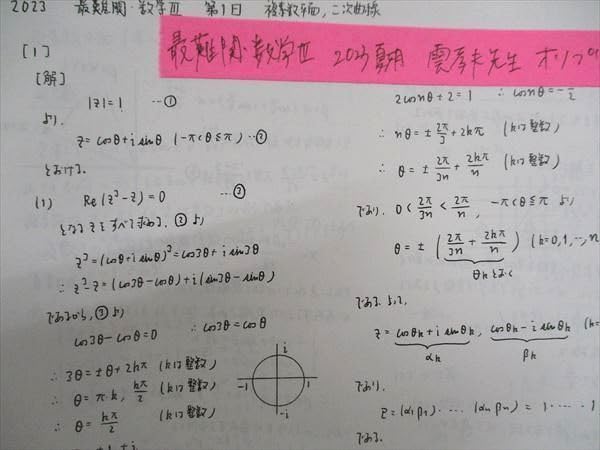 2023 最難関・数学Ⅲ 第1日 複素数平面,二次曲線
最難関・数学Ⅲ 2023夏期 雲孝夫先生
[1]
[解]
|z|=1 …①
より,
z=cosθ+i sinθ (-π<θ≦π) …②
とおける.
(1) Re(z³-z)=0 …③
となるzをすべて求める. ②より
z³=(cosθ+i sinθ)³=cos3θ+i sin3θ
∴ z³-z=(cos3θ-cosθ)+i(sin3θ-sinθ)
であるから, ③より
cos3θ-cosθ=0 ∴ cos3θ=cosθ
∴ 3θ=±θ+2kπ (kは整数)
∴ θ=π・k, kπ/2 (kは整数)
∴ θ=kπ/2 (kは整数)
i
-1 1
-i
2cosnθ+2=1 ∴ cosnθ=-1/2
∴ nθ=±2π/3+2kπ (kは整数)
∴ θ=±2π/3n+2kπ/n (kは整数)
であり, 0<2π/3n<2π/n, -π<θ≦π より
θ=±(2π/3n+2kπ/n) (k=0,1,…,n
θkとおく
である. よって,
z=cosθk+i sinθk, cosθk-i sinθk (k=
αk βk
であり,
z=(α1β1)・…・(αnβn)=1・…・1
である.